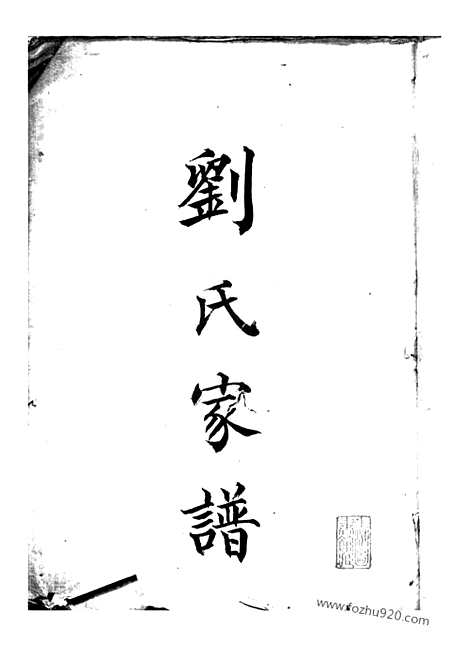 劉氏家譜
www.fozhu920.com